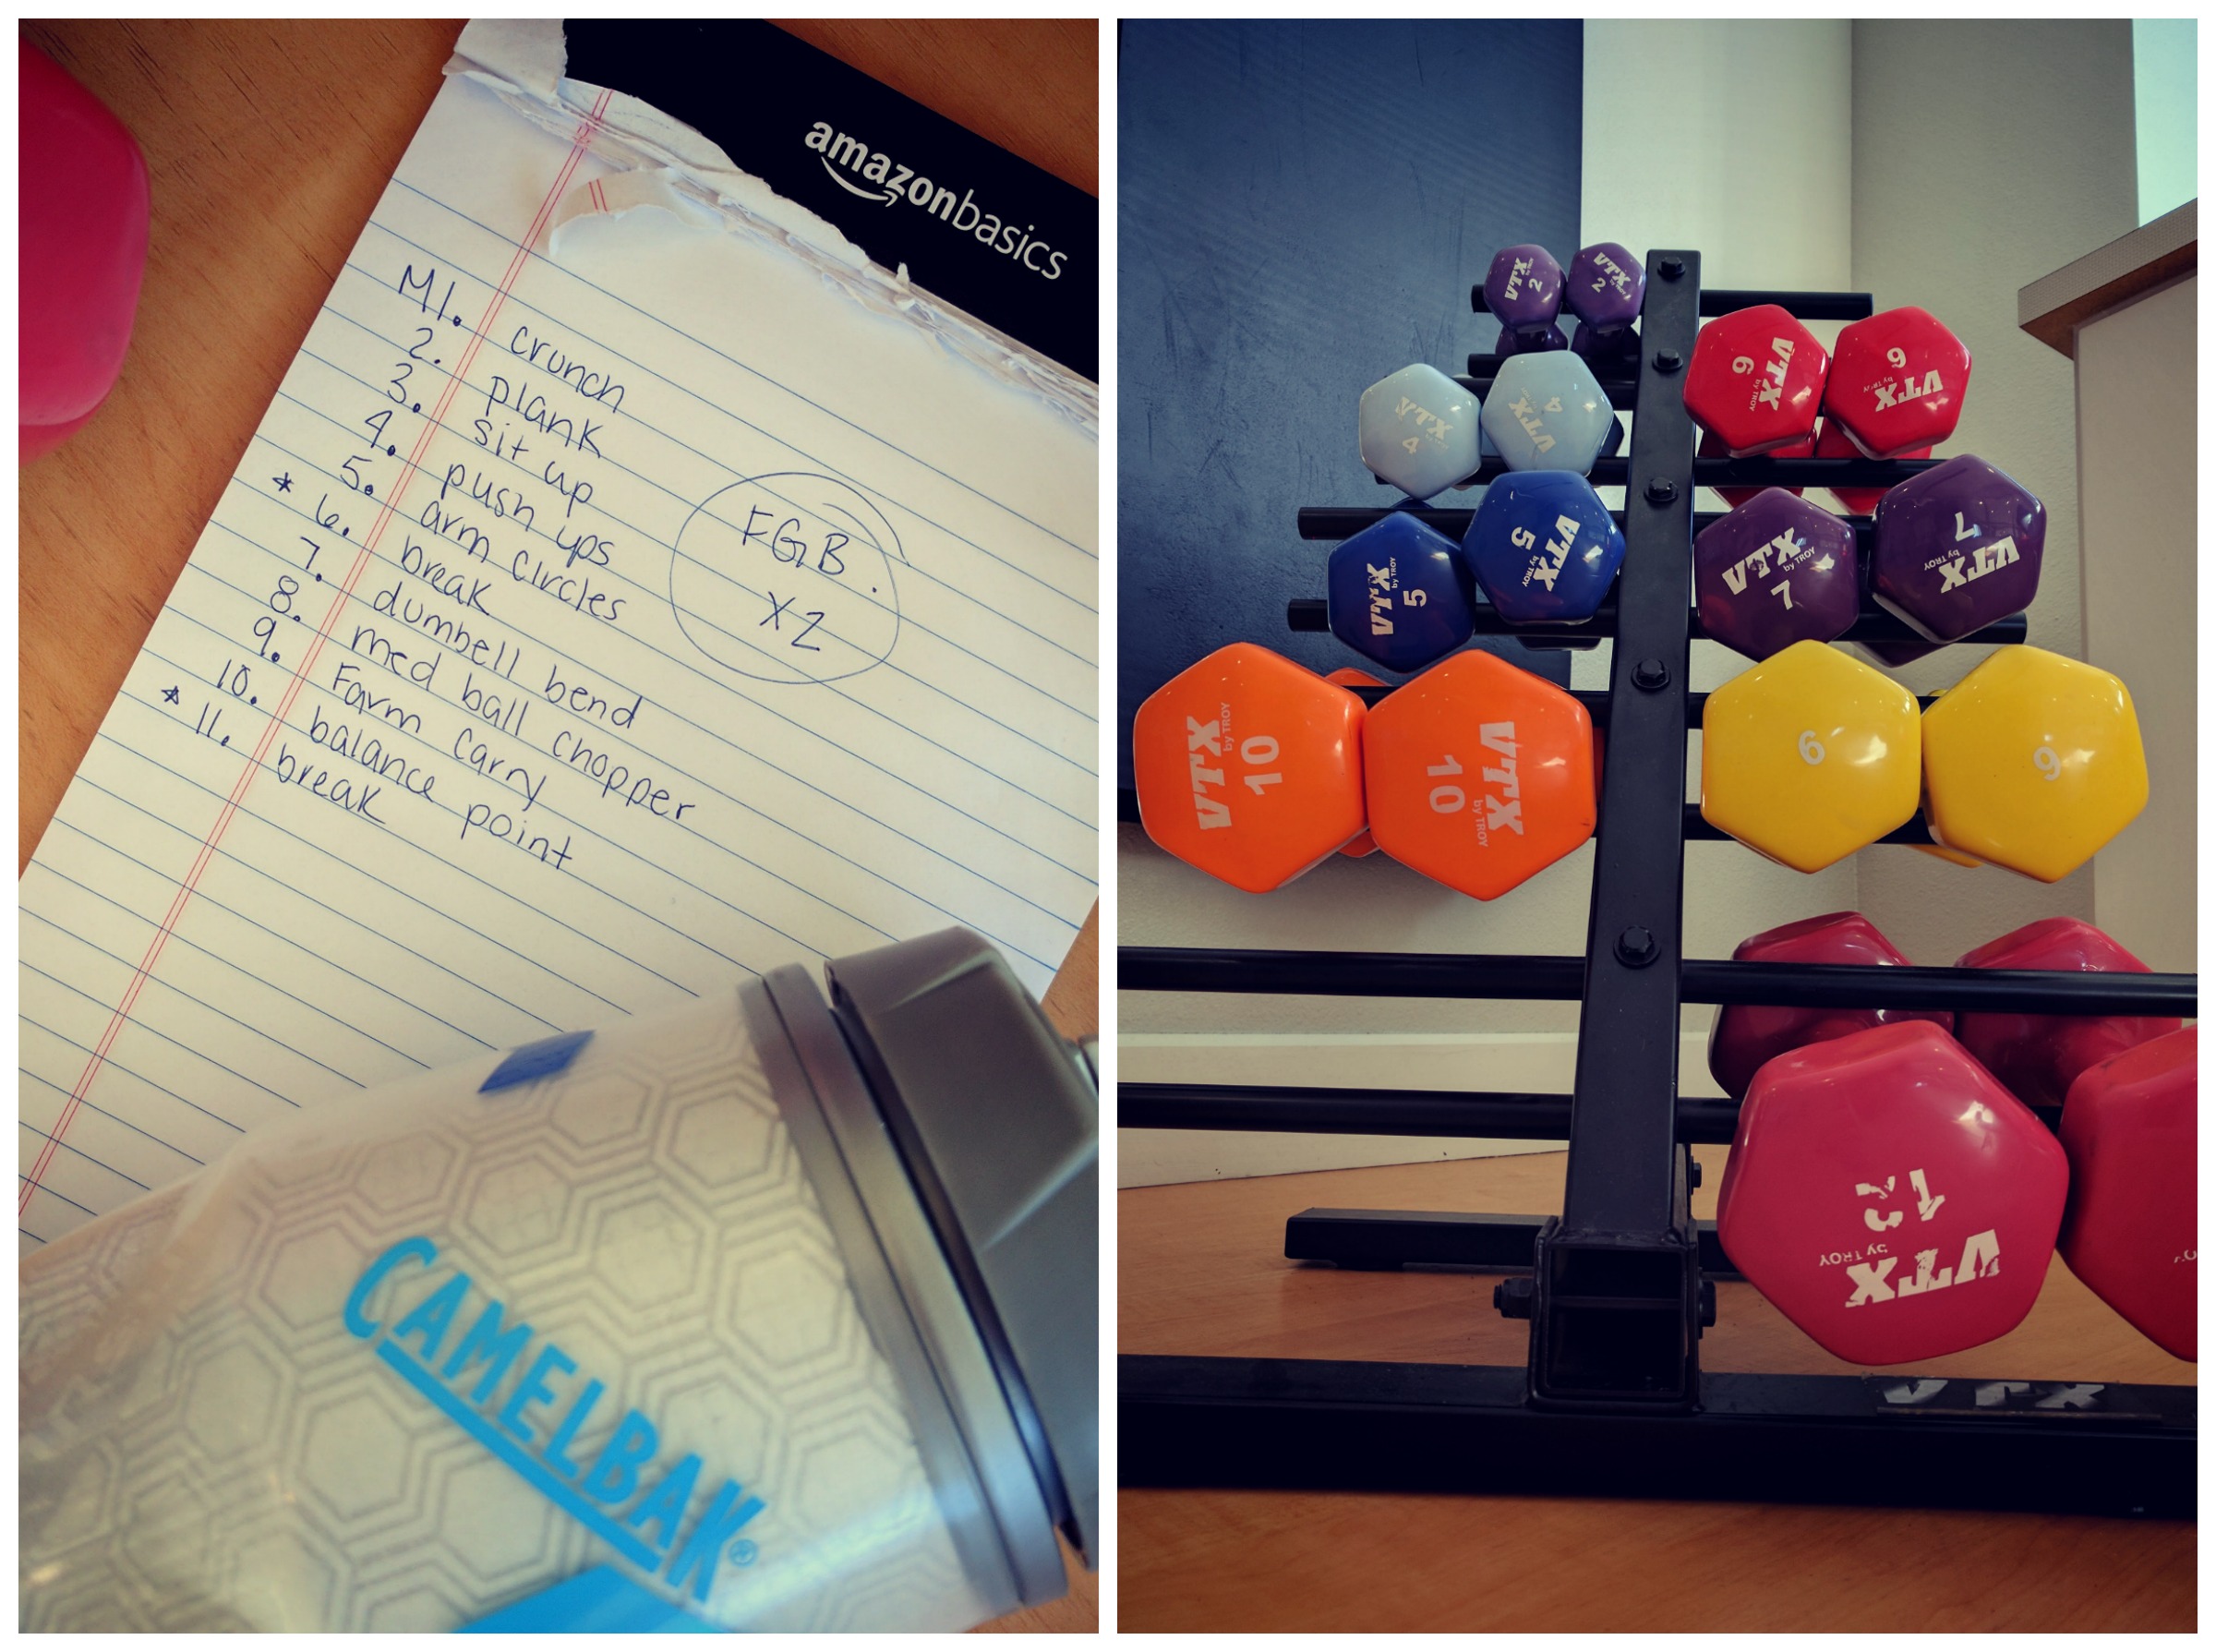 amazonbasics
M1. crunch
2. plank
3. sit up
4. push ups
5. arm circles
* 6. break
7. dumbell bend
8. med ball chopper
9. Farm carry
10. balance point
* 11. break
FGB.
X2
CAMELBAK®
VTX 2
VTX 2
VTX 4
VTX 4
VTX by TROY 6
VTX by TROY 6
VTX by TROY 5
VTX by TROY 5
VTX by TROY 7
VTX by TROY 7
VTX by TROY 10
VTX by TROY 10
9
9
12
VTX by TROY
VTX